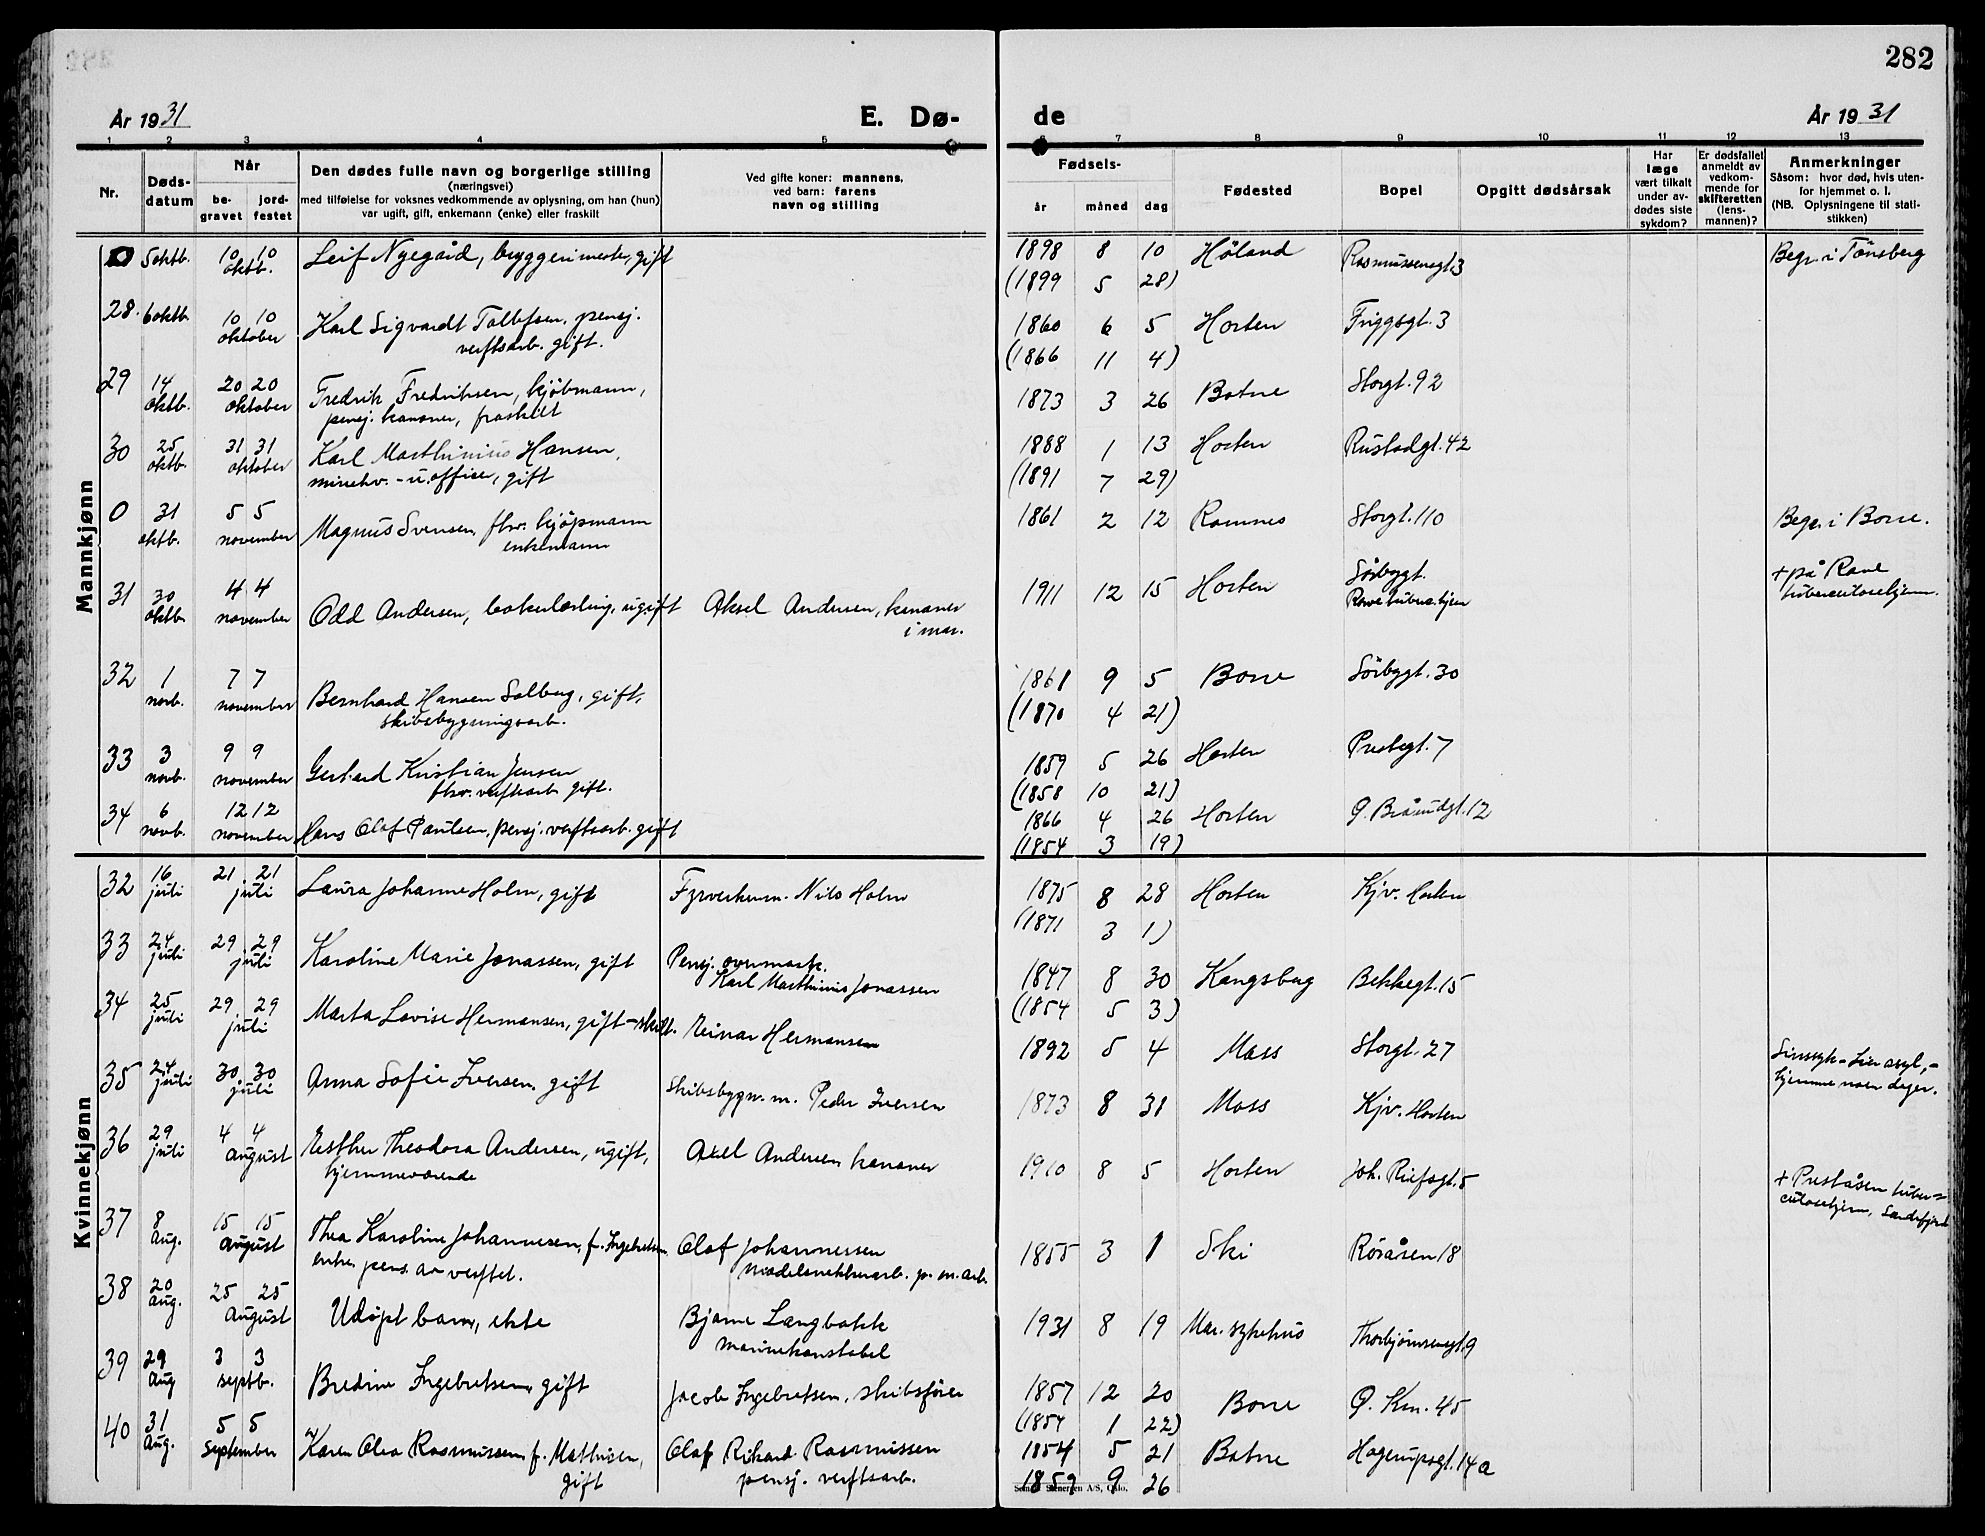 282
År 1931 E. Dø- de År 1931
1 2 3 4 5 6 7 8 9 10 11 12 13
Nr. Døds-datum Når be-gravet jord-festet
Den dødes fulle navn og borgerlige stilling
(næringsvei)
med tilføielse for voksnes vedkommende av oplysning, om han (hun)
var ugift, gift, enkemann (enke) eller fraskilt
Ved gifte koner: mannens,
ved barn: farens
navn og stilling
Fødsels- år måned dag
Fødested
Bopel
Opgitt dødsårsak
Har læge vært tilkalt under av-dødes siste sykdom?
Er dødsfallet anmeldt av vedkom-mende for skifteretten (lens-mannen)?
Anmerkninger
Såsom: hvor død, hvis uten-
for hjemmet o. l.
(NB. Oplysningene til stati-
stikken)
Mannkjønn
0 5 oktb. 10 10 oktb. Leif Nyegård, bryggerimester, gift 1898 8 10 Høland Rasmussensgt. 3 Begr. i Tønsberg
(1899 5 28)
28. 6 oktb. 10 10 oktober Karl Sigvardt Tollefsen, pensj. 1860 6 5 Horten Friggsgt. 3
verftsarb. gift. (1866 11 4)
29 14 oktb. 20 20 oktober Fredrik Fredriksen, kjøbmann, 1873 3 26 Botne Storgt. 92
pensj. kanoner, fraskilt
30 25 oktb. 31 31 oktober Karl Marthinius Hansen, 1888 1 13 Horten Rustadgt. 42
minehv. - u.officer, gift (1891 7 29)
0 31 oktb. 5 5 november Magnus Svensen, fhv. kjøpmann 1861 2 12 Ramnes Storgt. 110 Begr. i Borre.
enkemann
31 30 oktb. 4 4 november Odd Andersen, bakerlærling, ugift Aksel Andersen, kanoner 1911 12 15 Horten Sörbygt. + på Rove
i mar. Rove tuberc.hjem tuberculosehjem.
32 1 novb. 7 7 november Bernhard Hansen Solberg, gift, 1861 9 5 Borre Sörbygt. 30
skibsbygningsarb. (1870 4 21)
33 3 novb. 9 9 november Gerhard Kristian Jensen 1859 5 26 Horten Prestegt. 7
fhv. verftsarb. gift. (1858 10 21)
34 6 novb. 12 12 november Hans Olaf Paulsen, pensj. verftsarb. gift 1866 4 26 Horten Q. Bråundgt. 12
(1854 3 19)
Kvinnekjønn
32 16 juli 21 21 juli Laura Johanne Holm, gift Fyrverkerm. Nils Holm 1875 8 28 Horten Kjv. Horten
(1871 3 1)
33 24 juli 29 29 juli Karoline Marie Jonassen, gift Pensj. overmask. 1847 8 30 Kongsberg Bekkegt. 15
Karl Marthinius Jonassen (1854 5 3)
34 25 juli 29 29 juli Marta Lovise Hermansen, gift - skilt. Reinar Hermansen 1892 5 4 Moss Storgt. 27 Sinssyk - Lier asyl, -
hjemme noen dager.
35 24 juli 30 30 juli Anna Sofie Iversen, gift Skibsbygn. m. Peder Iversen 1873 8 31 Moss Kjv. Horten
36 29 juli 4 4 august Esther Theodora Andersen, ugift, Axel Andersen kanoner 1910 8 5 Horten Joh. Riisfsgt. 5 + Preståsen tuber=
hjemmeværende culosehjem, Sandefjord
37 8 aug. 15 15 august Thea Karoline Johannesen, f. Ingebretsen, Olaf Johannessen 1855 3 1 Ski Röråsen 18
enke pens. av verftet. modelsnekkerarb. p. m. arb.
38 20 aug. 25 25 august Udöpt barn, ekte Bjarne Langbakk 1931 8 19 Mar. sykehus Thorbjörnsensgt. 9
marinekonstabel
39 29 aug 3 3 septb. Bredine Ingebretsen, gift Jacob Ingebretsen, skibsfører 1857 12 20 Borre Q. Km. 45
(1857 1 22)
40 31 aug. 5 5 september Karen Olea Rasmussen, f. Mathisen, Olaf Rikard Rasmussen 1854 5 21 Botne Hagerupsgt. 14a
gift pensj. verftsarb. 1859 9 26
Stenersen A/S, Oslo.